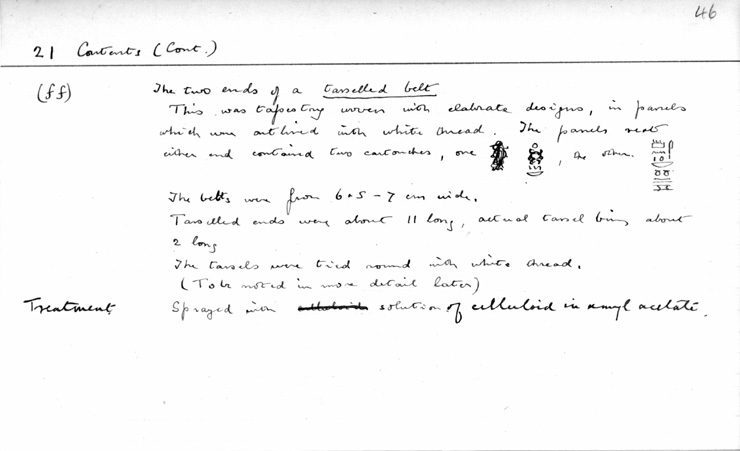 46
21 Contents (Cont.)
(ff) The two ends of a tasselled belt
This was tapestry woven with elaborate designs, in panels
which were outlined with white thread. The panels near
either end contained two cartouches, one , the other.
The belts were from 6.5 - 7 cm wide.
Tasselled ends were about 11 long, actual tassel being about
2 long
The tassels were tied round with white thread.
(To be noted in more detail later)
Treatment Sprayed with celluloid solution of celluloid in amyl acetate.